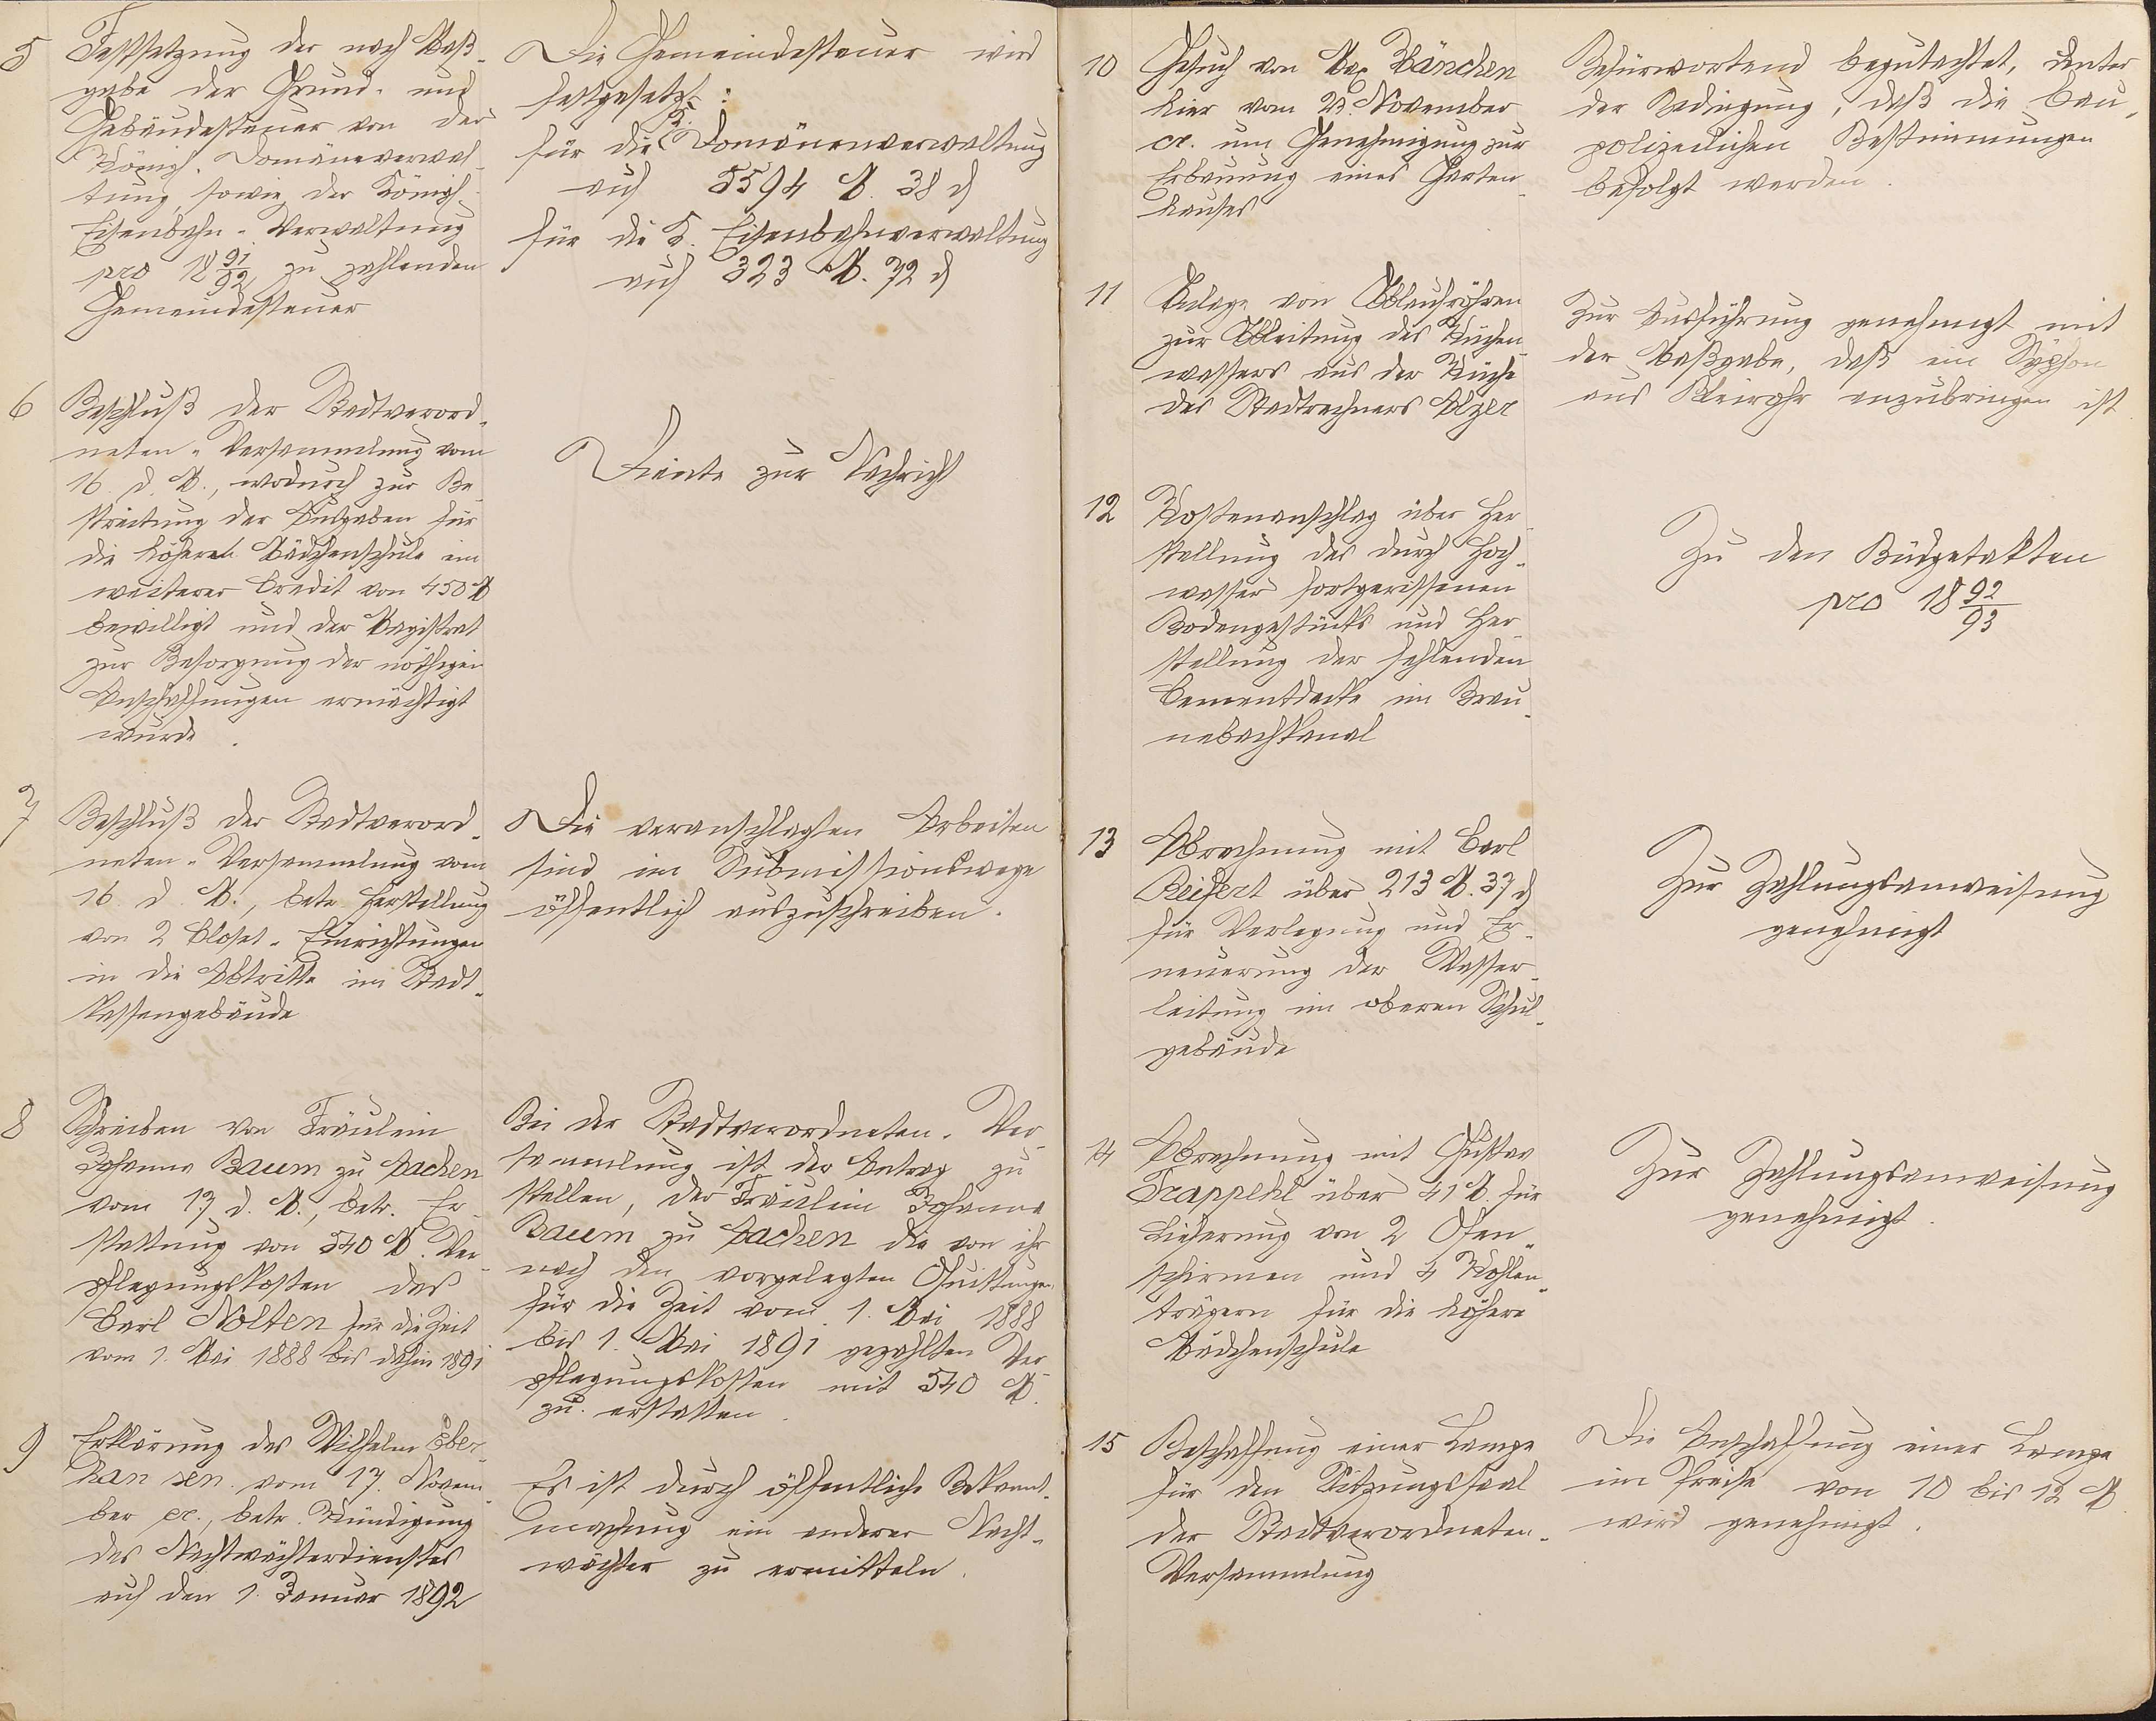 5
Festsetzung der nach Maß-
gabe der Grund- und
Gebäudesteuer von der
Königl. Domäneverwal-
tung, sowie der Königl.
Eisenbahn-Verwaltung
pro 18 91/92 zu zahlenden
Gemeindesteuer
Die Gemeindesteuer wird
festgesetzt:
für die K. Domänenverwaltung
auf 5594 M. 38 d
für die K. Eisenbahnverwaltung
auf 323 M. 72 d
6
Beschluß der Stadtverord-
neten-Versammlung vom
16. d. M., wodurch zur Be-
streitung der Ausgaben für
die höhere Mädchenschule ein
weiterer Credit von 450 M
bewilligt und der Magistrat
zur Besorgung der nöthigen
Anschaffungen ermächtigt
wurde.
Diente zur Nachricht
7
Beschluß der Stadtverord-
neten-Versammlung vom
16. d. M., betr. Herstellung
von 2 Closet-Einrichtungen
in die Abtritte im Stadt-
kassengebäude
Die veranschlagten Arbeiten
sind im Submissionswege
öffentlich auszuschreiben.
8
Schreiben von Fräulein
Johanna Baum zu Aachen
vom 17. d. M., betr. Er-
stattung von 540 M. Ver-
pflegungskosten des
Carl Nolten für die Zeit
vom 1. Mai 1888 bis dahin 1891
Bei der Stadtverordneten-Ver-
sammlung ist der Antrag zu
stellen, der Fräulein Johanna
Baum zu Aachen die von ihr
nach den vorgelegten Quittungen
für die Zeit vom 1. Mai 1888
bis 1. Mai 1891 gezahlten Ver-
pflegungskosten mit 540 M.
zu erstatten.
9
Erklärung des Wilhelm Ober-
hansen vom 17. Novem-
ber cr., betr. Kündigung
des Nachtwächterdienstes
auf den 1. Januar 1892
Es ist durch öffentliche Bekannt-
machung ein anderer Nacht-
wächter zu ermitteln.
10
Gesuch von Max Hänchen
hier vom 23. November
cr. um Genehmigung zur
Erbauung eines Garten-
hauses
Befürwortend begutachtet, unter
der Bedingung, daß die bau-
polizeilichen Bestimmungen
befolgt werden.
11
Anlage von Ablaufröhren
zur Ableitung des Küchen-
wassers aus der Küche
des Stadtrechners Alzer
Zur Ausführung genehmigt mit
der Maßgabe, daß ein Syphon
aus Bleirohr anzubringen ist.
12
Kostenanschlag über Her-
stellung des durch Hoch-
wasser fortgerissenen
Bodengestücks und Her-
stellung der fehlenden
Cementdecke im Brau-
nebachkanal
Zu den Büdgetakten
pro 18 92/93
13
Abrechnung mit Carl
Reifert über 213 M. 37 d
für Verlegung und Er-
neuerung der Wasser-
leitung im oberen Schul-
gebäude
Zur Zahlungsanweisung
genehmigt
14
Abrechnung mit Gustav
Trappehl über 41 M. für
Lieferung von 2 Ofen-
schirmen und 4 Kohlen-
trägern für die höhere
Mädchenschule
Zur Zahlungsanweisung
genehmigt.
15
Beschaffung einer Lampe
für den Sitzungssaal
der Stadtverordneten-
Versammlung
Die Anschaffung einer Lampe
im Preise von 10 bis 12 M
wird genehmigt.